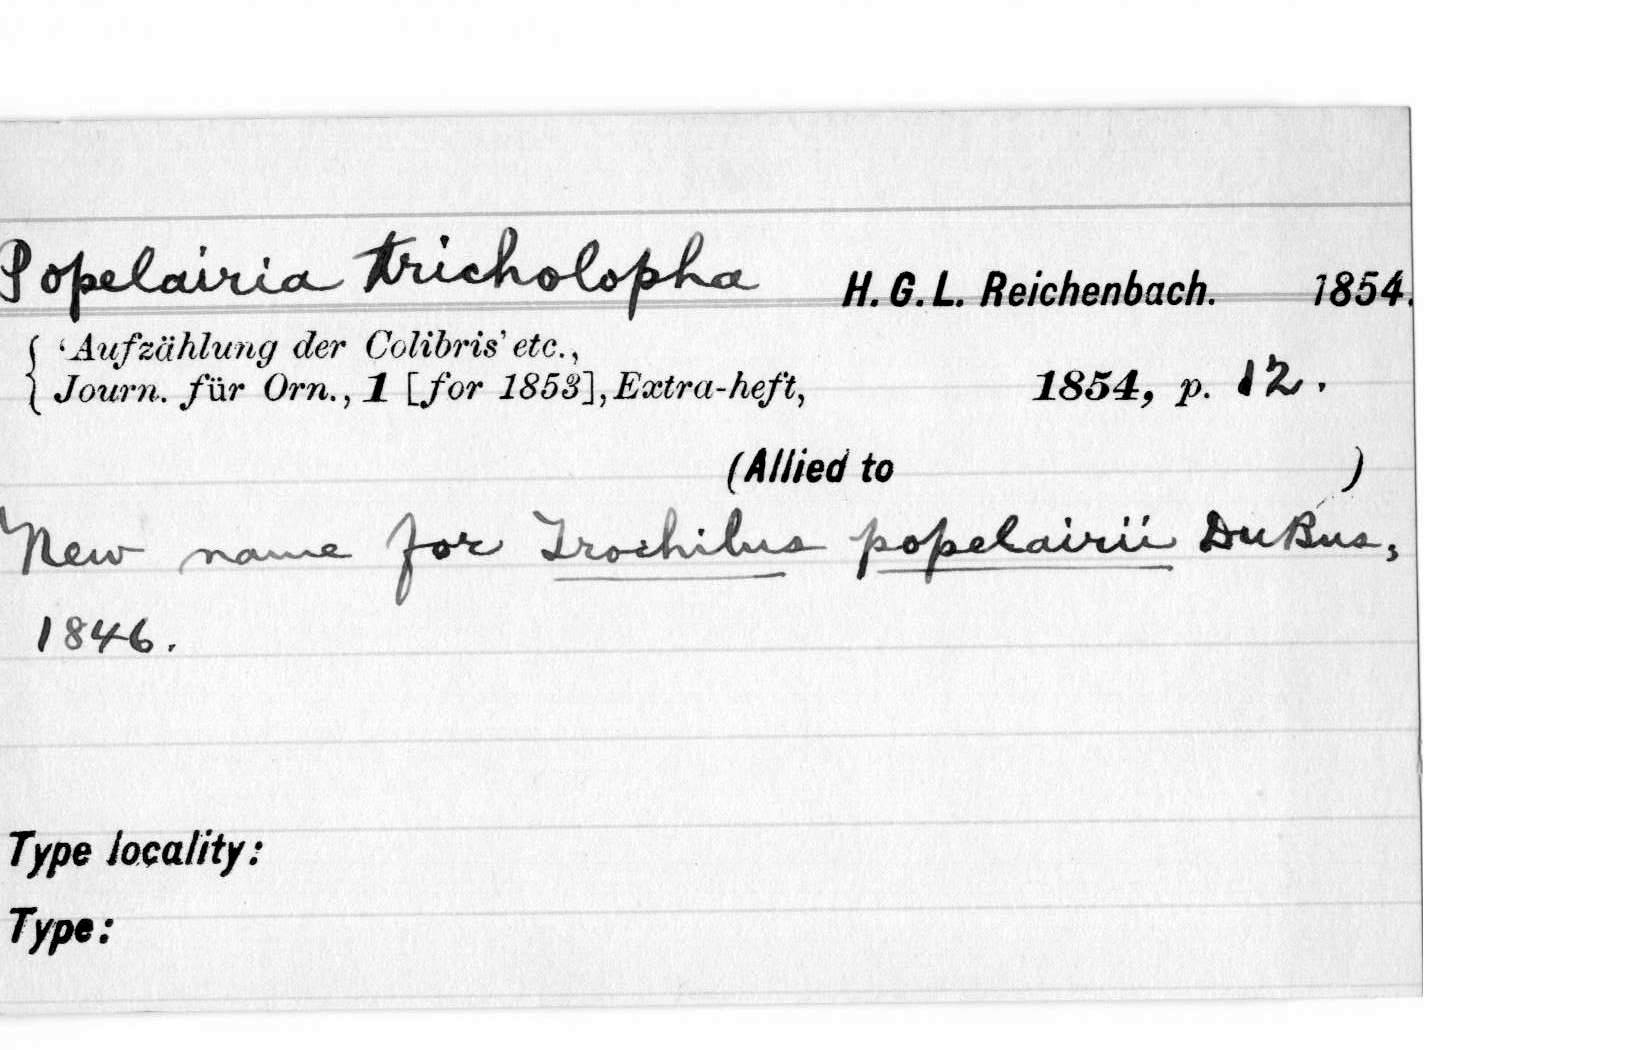 Popelairia tricholopha H. G. L. Reichenbach. 1854.
‘Aufzählung der Colibris’ etc.,
Journ. für Orn., 1 [for 1853], Extra-heft, 1854, p. 12.
(Allied to )
New name for Trochilus popelairii DuBus,
1846.
Type locality:
Type: